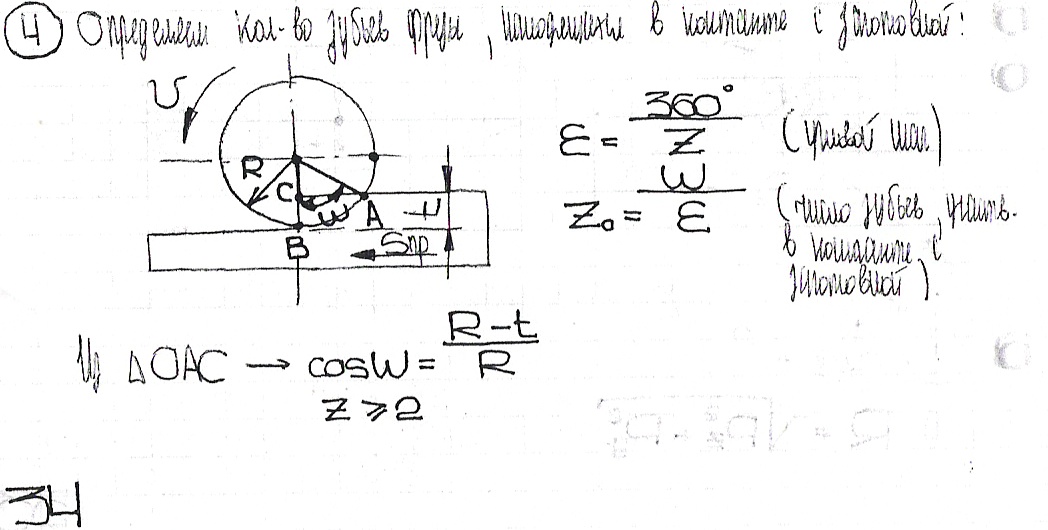 4 Определяем кол-во зубьев фрезы, находящихся в контакте с заготовкой:
υ
R
C
ω
A
t
B
Sпр
ε = 360° / Z (угловой шаг)
Z₀ = ω / ε (число зубьев, участв.
в контакте с
заготовкой).
Из △OAC → cosω = R-t / R
Z ⩾ 2
34